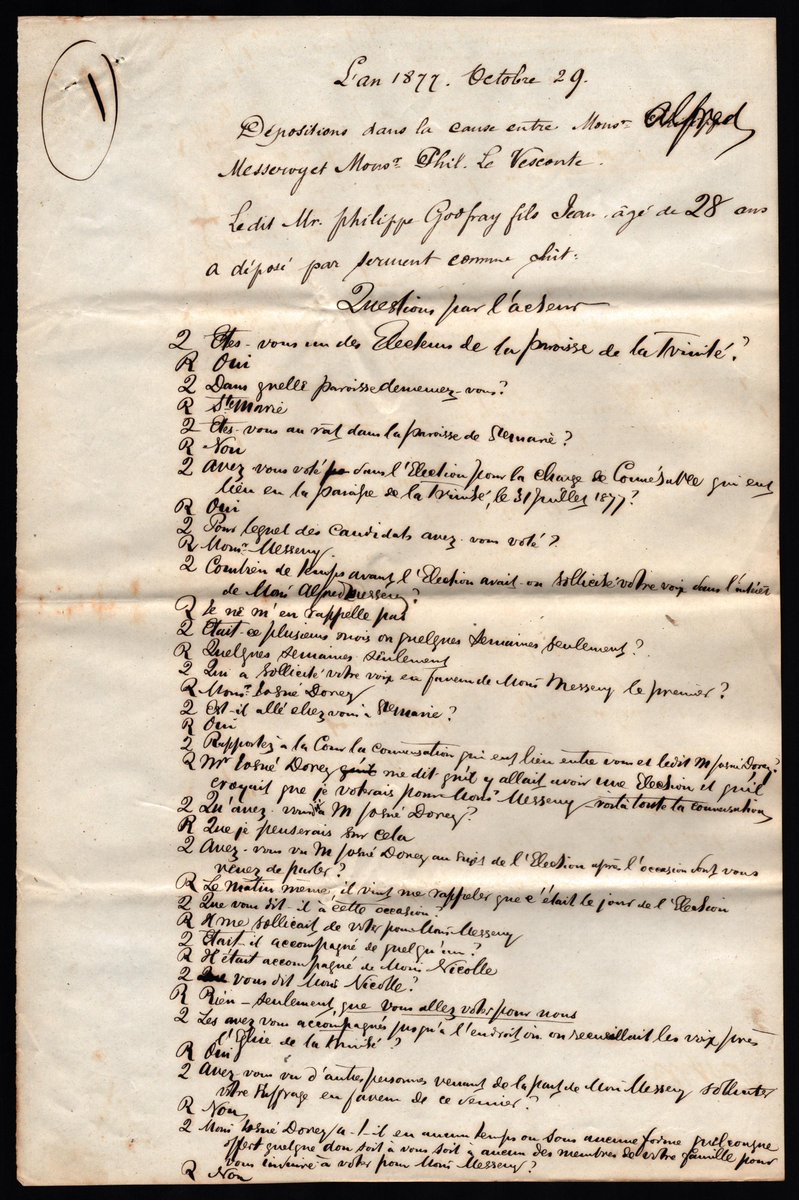 1
L'an 1877. Octobre 29.
Dépositions dans la cause entre Monsr Alfred
Messervy et Monsr Phil. Le Vesconte.
Ledit Mr. Philippe Godfray fils Jean, âgé de 28 ans
a déposé par serment comme suit:
Questions par l'acteur
Q Etes-vous un des Electeurs de la paroisse de la Trinité?
R Oui
Q Dans quelle paroisse demeurez-vous?
R Ste Marie
Q Etes-vous au rât dans la paroisse de Ste Marie?
R Non
Q Avez vous voté dans l'Election pour la charge de Connétable qui eut
lieu en la paroisse de la Trinité, le 31 Juillet 1877?
R Oui
Q Pour lequel des candidats avez-vous voté?
R Monsr Messervy
Q Combien de temps avant l'Election avait-on sollicité votre voix dans l'intérêt
de Monsr Alfred Messervy?
R Je ne m'en rappelle pas
Q Etait-ce plusieurs mois ou quelques semaines seulement?
R Quelques semaines seulement
Q Qui a sollicité votre voix en faveur de Monsr Messervy le premier?
R Monsr Josué Dorey
Q Est-il allé chez vous à Ste Marie?
R Oui
Q Rapportez à la Cour la conversation qui eut lieu entre vous et ledit M Josué Dorey?
R Mr Josué Dorey me dit qu'il y allait avoir une Election et qu'il
croyait que je voterais pour Monsr Messervy voilà toute la conversation
Q Qu'avez-vous M Josué Dorey?
R Que je penserais sur cela
Q Avez-vous vu M Josué Dorey au sujet de l'Election après l'occasion dont vous
venez de parler?
R Le matin même, il vint me rappeler que c'était le jour de l'Election
Q Que vous dit-il à cette occasion?
R Il me sollicait de voter pour Monsr Messervy
Q Etait-il accompagné de quelqu'un?
R Il était accompagné de Monsr Nicolle
Q Que vous dit Monsr Nicolle?
R Rien - seulement que vous allez voter pour nous
Q Les avez vous accompagnés jusqu'à l'endroit où on recueillait les voix près
l'Eglise de la Trinité?
R Oui
Q Avez vous vu d'autres personnes venant de la part de Monsr Messervy solliciter
votre suffrage en faveur de ce dernier?
R Non
Q Monsr Josué Dorey a-t-il en aucun temps ou sous aucune forme quelconque
offert quelque don soit à vous soit à aucun des membres de votre famille pour
vous induire à voter pour Monsr Messervy?
R Non